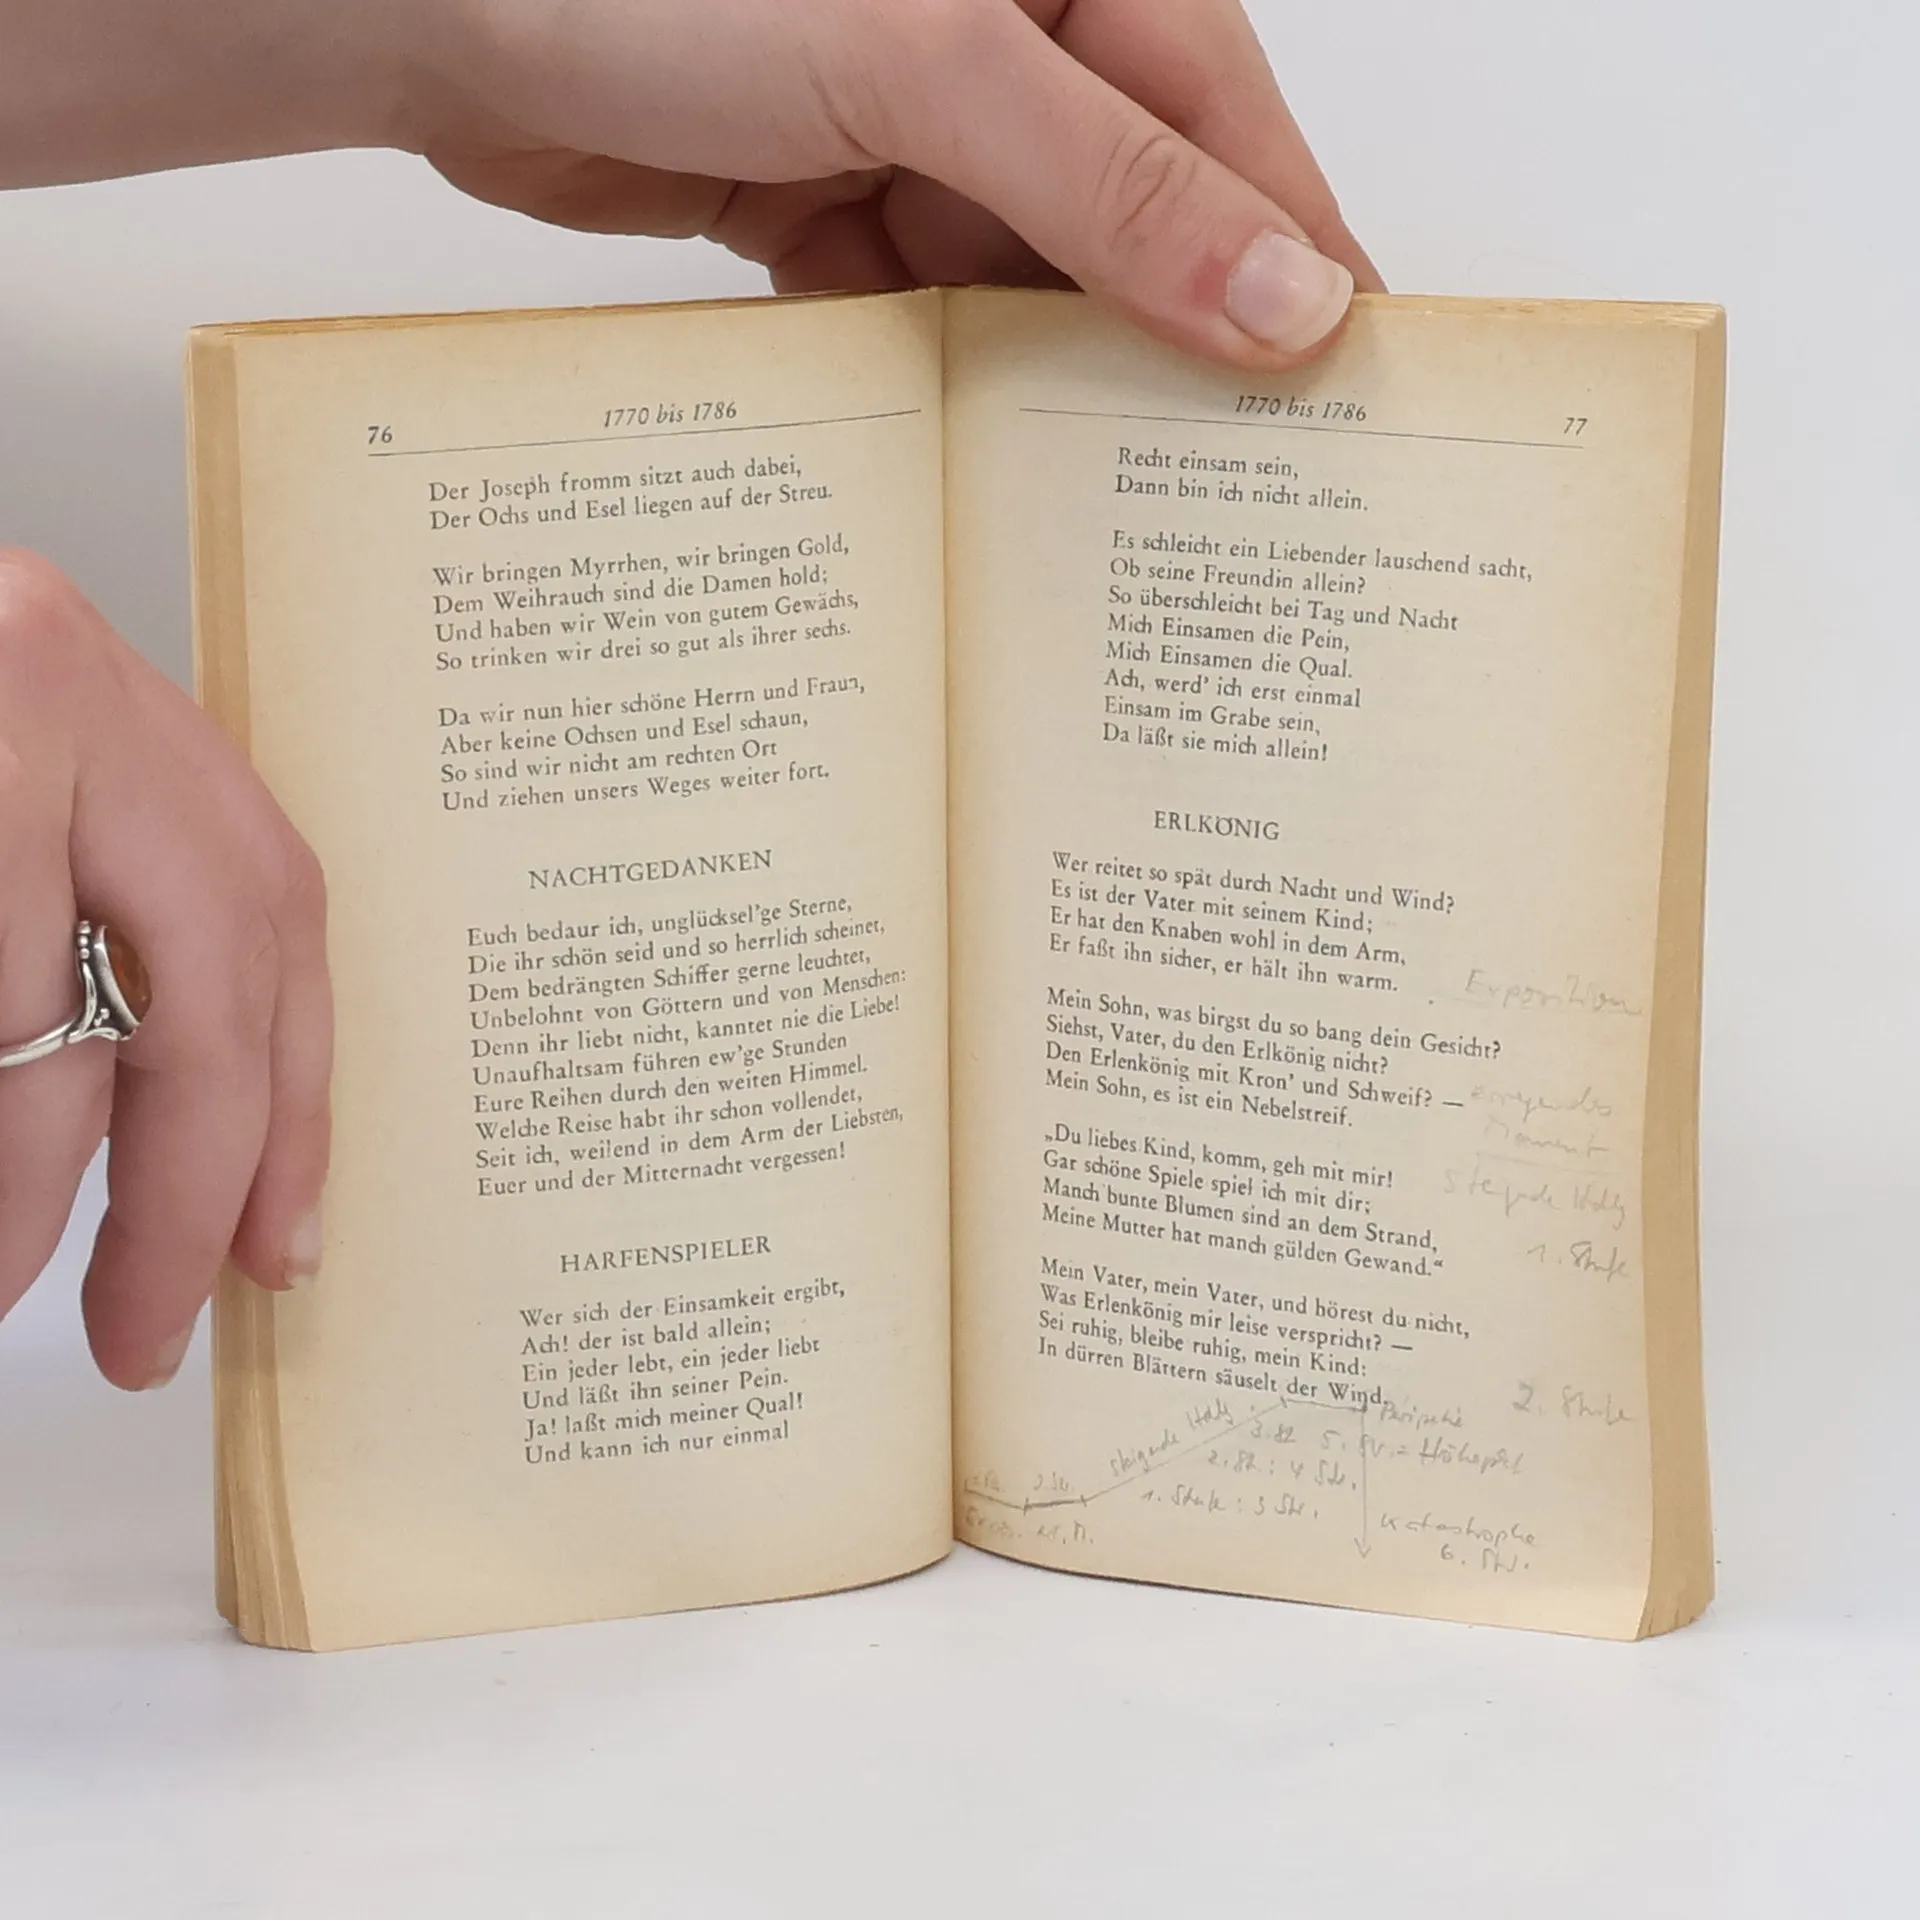 76
1770 bis 1786
Der Joseph fromm sitzt auch dabei,
Der Ochs und Esel liegen auf der Streu.
Wir bringen Myrrhen, wir bringen Gold,
Dem Weihrauch sind die Damen hold;
Und haben wir Wein von gutem Gewächs,
So trinken wir drei so gut als ihrer sechs.
Da wir nun hier schöne Herrn und Fraun,
Aber keine Ochsen und Esel schaun,
So sind wir nicht am rechten Ort
Und ziehen unsers Weges weiter fort.
NACHTGEDANKEN
Euch bedaur ich, unglücksel'ge Sterne,
Die ihr schön seid und so herrlich scheinet,
Dem bedrängten Schiffer gerne leuchtet,
Unbelohnt von Göttern und von Menschen:
Denn ihr liebt nicht, kanntet nie die Liebe!
Unaufhaltsam führen ew'ge Stunden
Eure Reihen durch den weiten Himmel.
Welche Reise habt ihr schon vollendet,
Seit ich, weilend in dem Arm der Liebsten,
Euer und der Mitternacht vergessen!
HARFENSPIELER
Wer sich der Einsamkeit ergibt,
Ach! der ist bald allein;
Ein jeder lebt, ein jeder liebt
Und läßt ihn seiner Pein.
Ja! laßt mich meiner Qual!
Und kann ich nur einmal
1770 bis 1786
77
Recht einsam sein,
Dann bin ich nicht allein.
Es schleicht ein Liebender lauschend sacht,
Ob seine Freundin allein?
So überschleicht bei Tag und Nacht
Mich Einsamen die Pein,
Mich Einsamen die Qual.
Ach, werd' ich erst einmal
Einsam im Grabe sein,
Da läßt sie mich allein!
ERLKÖNIG
Wer reitet so spät durch Nacht und Wind?
Es ist der Vater mit seinem Kind;
Er hat den Knaben wohl in dem Arm,
Er faßt ihn sicher, er hält ihn warm.
Exposition
Mein Sohn, was birgst du so bang dein Gesicht?
Siehst, Vater, du den Erlkönig nicht?
Den Erlenkönig mit Kron' und Schweif? —
Mein Sohn, es ist ein Nebelstreif.
erregendes
Moment
„Du liebes Kind, komm, geh mit mir!
Gar schöne Spiele spiel ich mit dir;
Manch bunte Blumen sind an dem Strand,
Meine Mutter hat manch gülden Gewand.“
Steigende Hdlg
1. Stufe
Mein Vater, mein Vater, und hörest du nicht,
Was Erlenkönig mir leise verspricht? —
Sei ruhig, bleibe ruhig, mein Kind:
In dürren Blättern säuselt der Wind.
2. Stufe
steigende Hdlg.
Peripetie
3. St. 5.
= Höhepkt
2. St. : 4 Str.
1. Stufe : 3 Str.
2. Str.
Katastrophe
6. Str.